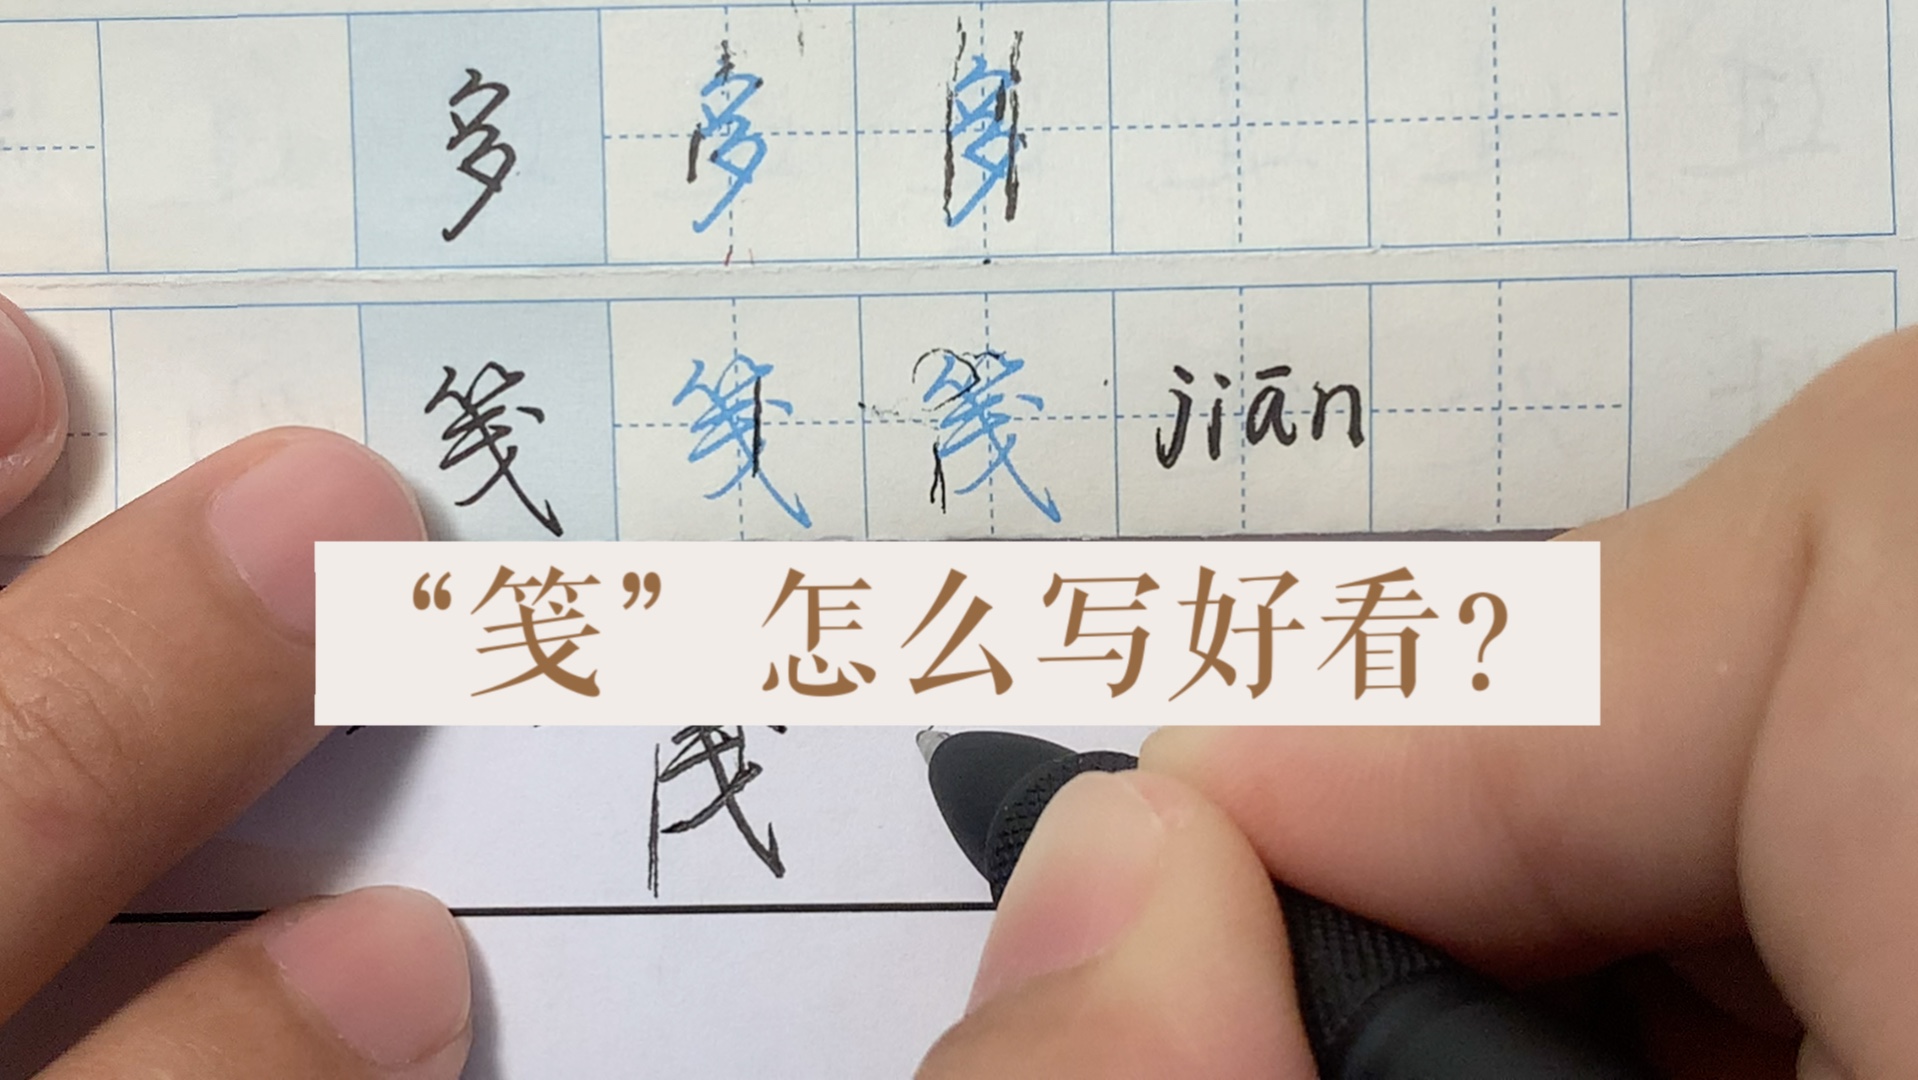 多 多 多
笺 笺 笺 jiān
“笺”怎么写好看?